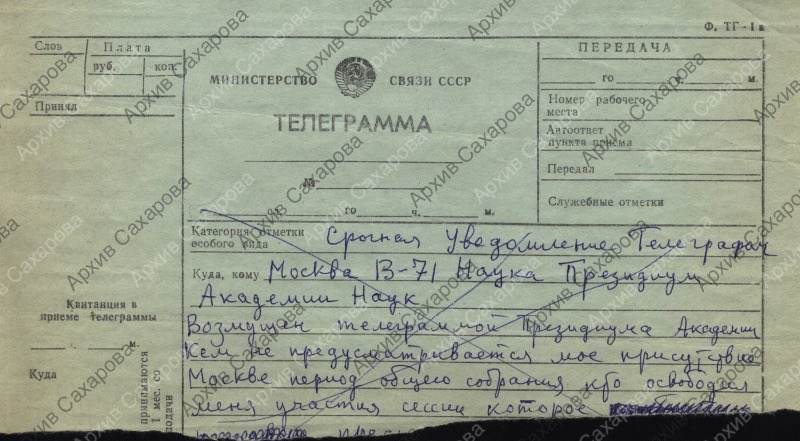 Ф. ТГ-1а
Слов
Плата
руб.
коп.
Принял
МИНИСТЕРСТВО СВЯЗИ СССР
ТЕЛЕГРАММА
№
от го ч. м.
ПЕРЕДАЧА
го ч. м.
Номер рабочего
места
Автоответ
пункта приема
Передал
Служебные отметки
Категория отметки
особого вида
Срочная Уведомление Телеграфом
Куда, кому Москва В-71 Наука Президиум
Академии Наук
Возмущен телеграммой Президиума Академии
Кем не предусматривается мое присутствие
Москве период общего собрания кто освободил
меня участия сессии которое
Квитанция в
приеме телеграммы
м.
Куда
принимаются
1 мес. со
подачи
Архив Сахарова